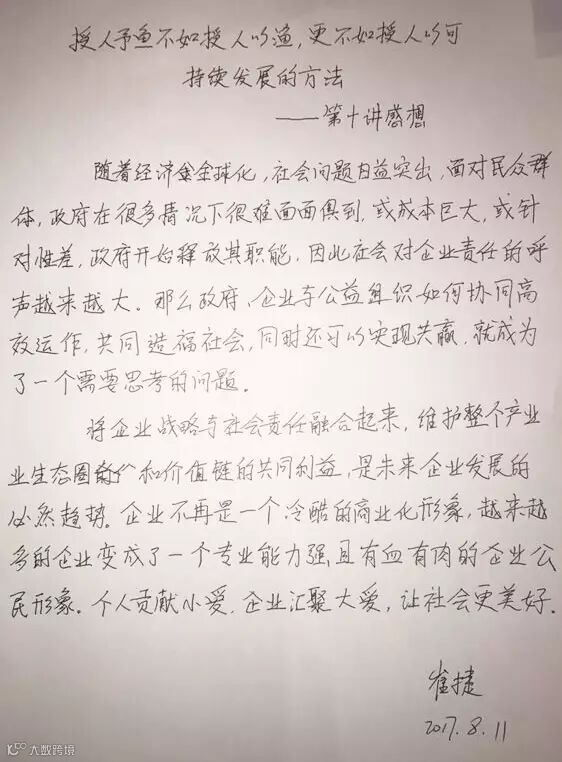 授人予鱼不如授人以渔,更不如授人以可
持续发展的方法
——第十讲感想
随着经济全球化,社会问题日益突出,面对民众群
体,政府在很多情况下很难面面俱到,或成本巨大,或针
对性差,政府开始释放其职能,因此社会对企业责任的呼
声越来越大。那么政府、企业与公益组织如何协同高
效运作,共同造福社会,同时还可以实现共赢,就成为
了一个需要思考的问题。
将企业战略与社会责任融合起来,维护整个产业
业生态圈和价值链的共同利益,是未来企业发展的
必然趋势。企业不再是一个冷酷的商业化形象,越来越
多的企业变成了一个专业能力强且有血有肉的企业公
民形象。个人贡献小爱,企业汇聚大爱,让社会更美好.
崔捷
2017.8.11
大数跨境